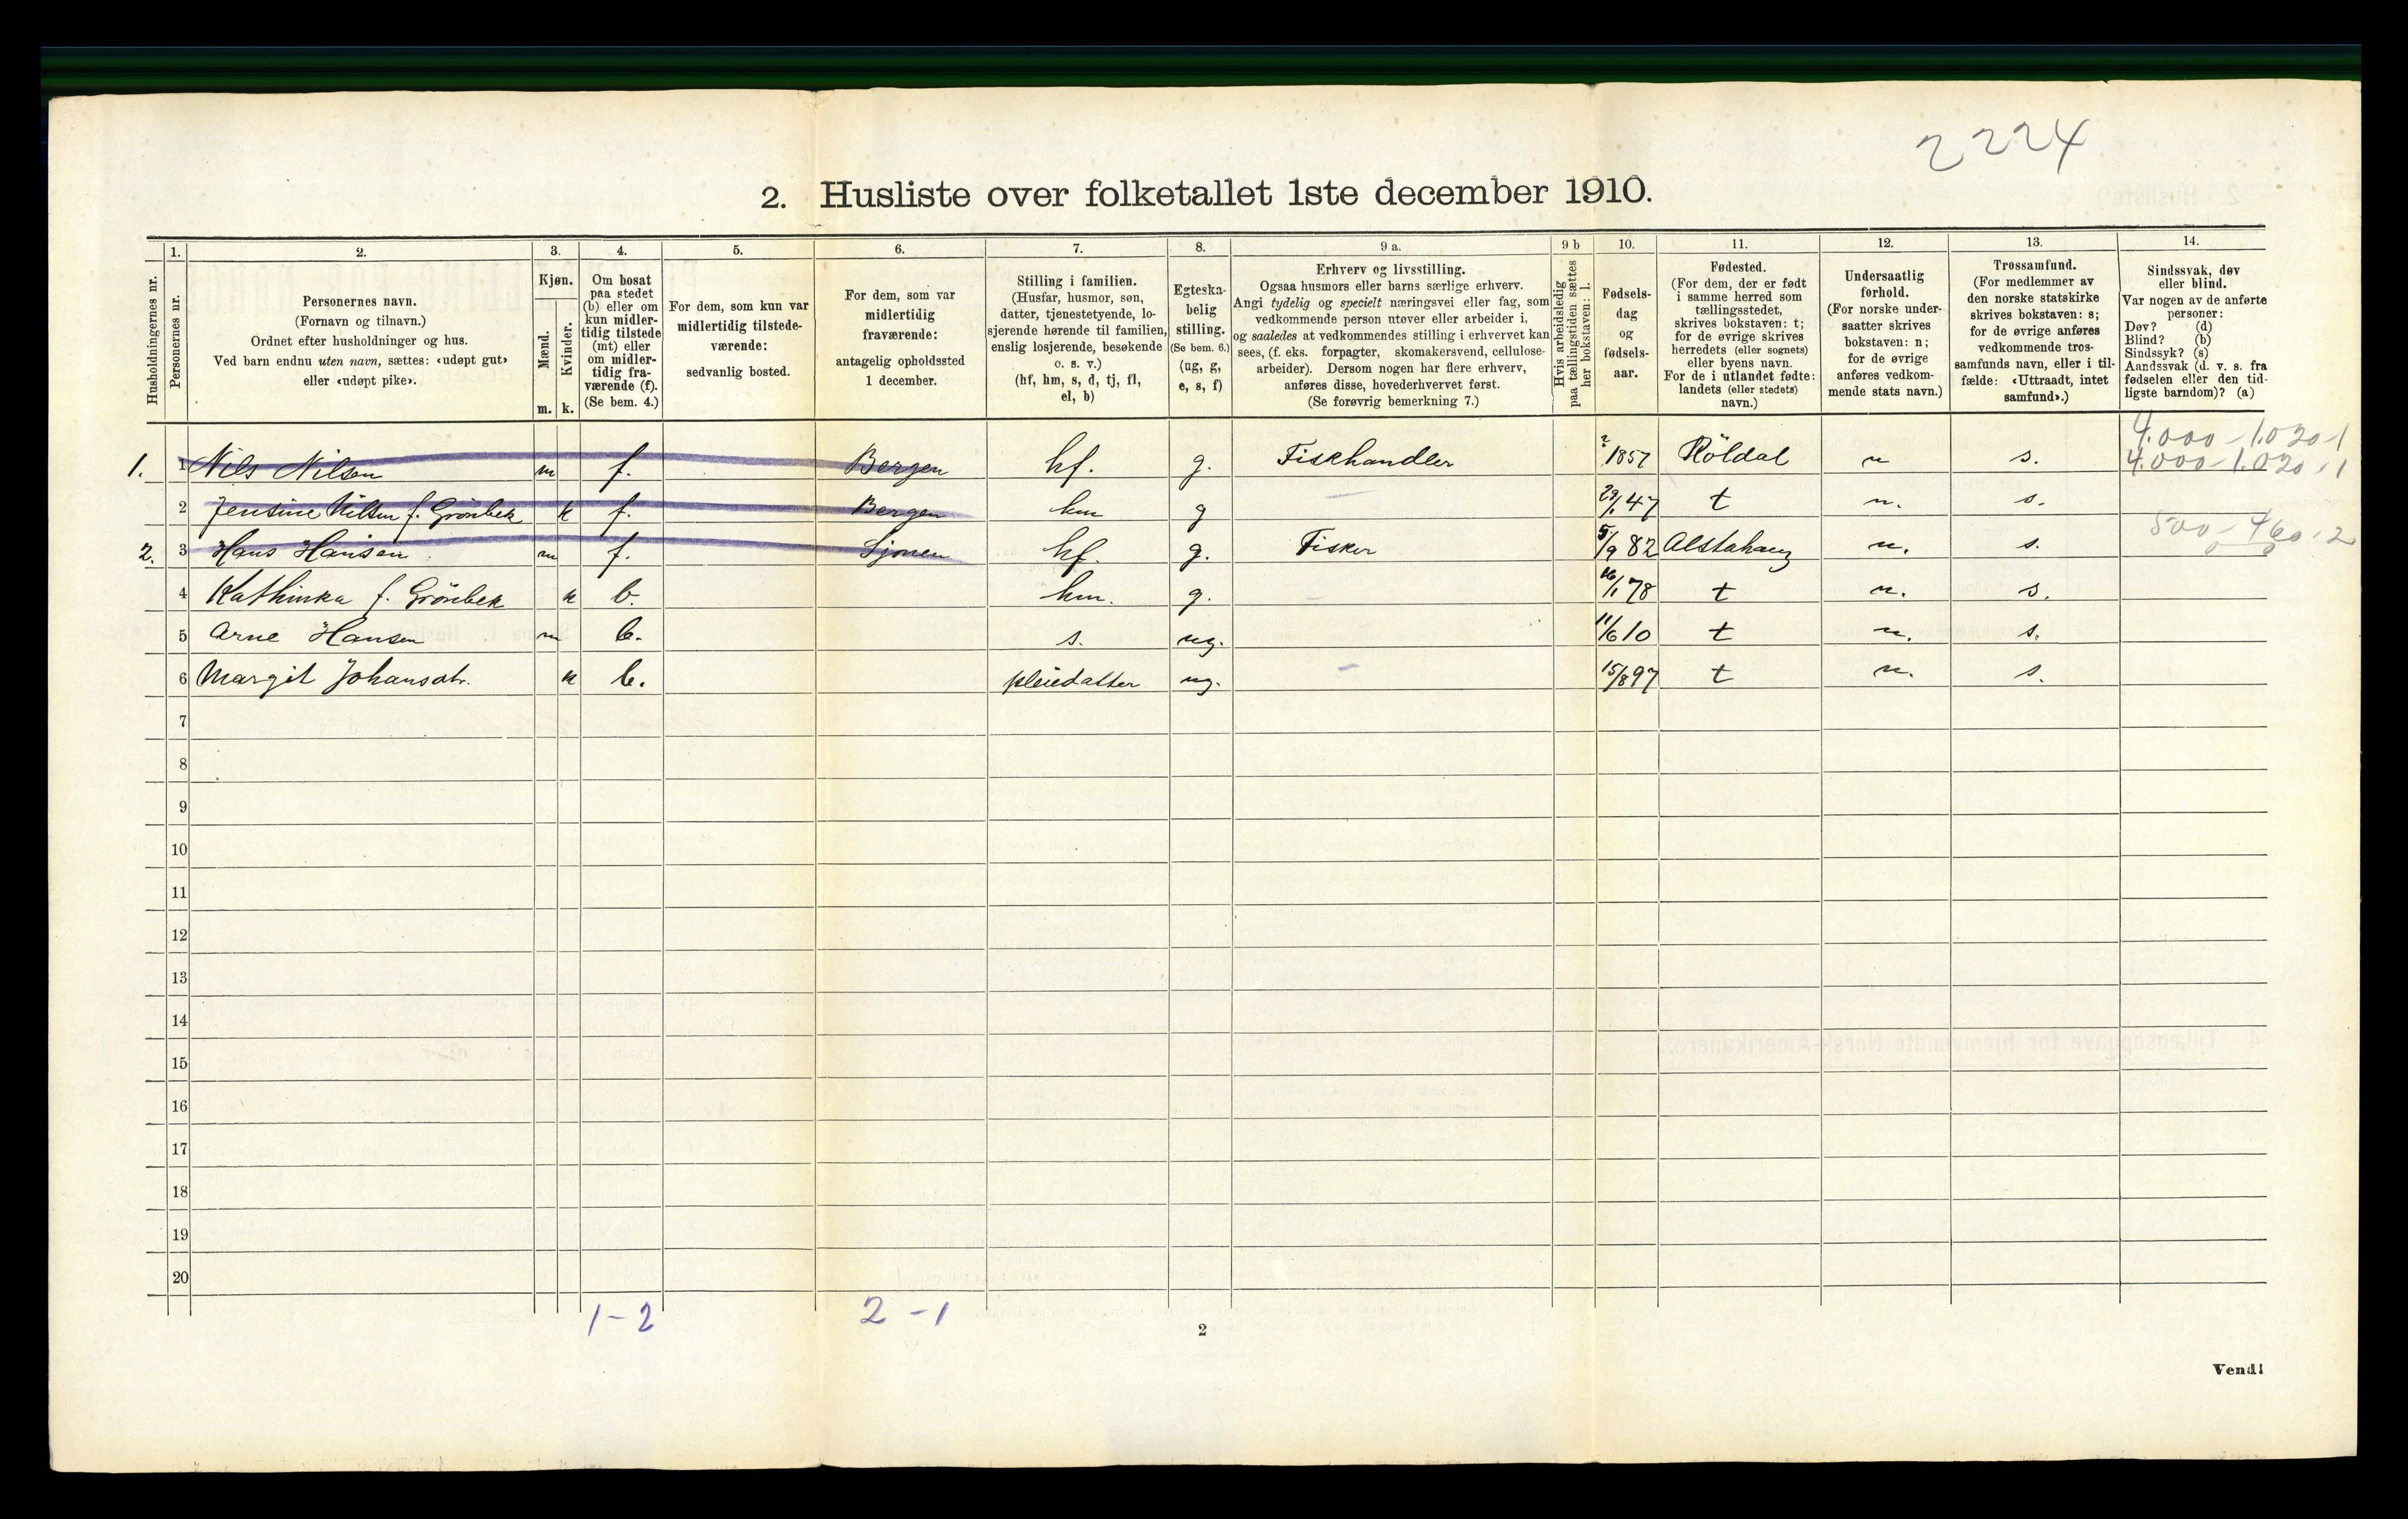 2224
2. Husliste over folketallet 1ste december 1910.
Husholdningernes nr.
1.
Personernes nr.
2.
Personernes navn.
(Fornavn og tilnavn.)
Ordnet efter husholdninger og hus.
Ved barn endnu uten navn, sættes: «udøpt gut»
eller «udøpt pike».
3.
Kjøn.
Mænd.
m.
Kvinder.
k.
4.
Om bosat
paa stedet
(b) eller om
kun midler-
tidig tilstede
(mt) eller
om midler-
tidig fra-
værende (f).
(Se bem. 4.)
5.
For dem, som kun var
midlertidig tilstede-
værende:
sedvanlig bosted.
6.
For dem, som var
midlertidig
fraværende:
antagelig opholdssted
1 december.
7.
Stilling i familien.
(Husfar, husmor, søn,
datter, tjenestetyende, lo-
sjerende hørende til familien,
enslig losjerende, besøkende
o. s. v.)
(hf, hm, s, d, tj, fl,
el, b)
8.
Egteska-
belig
stilling.
(Se bem. 6.)
(ug, g,
e, s, f)
9 a.
Erhverv og livsstilling.
Ogsaa husmors eller barns særlige erhverv.
Angi tydelig og specielt næringsvei eller fag, som
vedkommende person utøver eller arbeider i,
og saaledes at vedkommendes stilling i erhvervet kan
sees, (f. eks. forpagter, skomakersvend, cellulose-
arbeider). Dersom nogen har flere erhverv,
anføres disse, hovederhvervet først.
(Se forøvrig bemerkning 7.)
9 b
Hvis arbeidsledig
paa tællingstiden sættes
her bokstaven: l.
10.
Fødsels-
dag
og
fødsels-
aar.
11.
Fødested.
(For dem, der er født
i samme herred som
tællingsstedet,
skrives bokstaven: t;
for de øvrige skrives
herredets (eller sognets)
eller byens navn.
For de i utlandet fødte:
landets (eller stedets)
navn.)
12.
Undersaatlig
forhold.
(For norske under-
saatter skrives
bokstaven: n;
for de øvrige
anføres vedkom-
mende stats navn.)
13.
Trossamfund.
(For medlemmer av
den norske statskirke
skrives bokstaven: s;
for de øvrige anføres
vedkommende tros-
samfunds navn, eller i til-
fælde: «Uttraadt, intet
samfund».)
14.
Sindssvak, døv
eller blind.
Var nogen av de anførte
personer:
Døv? (d)
Blind? (b)
Sindssyk? (s)
Aandssvak (d. v. s. fra
fødselen eller den tid-
ligste barndom)? (a)
4.000 - 1.020-1
1. 1 Nils Nilsen m f. Bergen hf. g. Fiskhandler ?/1857 Röldal n s. 4.000 - 1.020-1
2 Jensine Nilsen f. Grönbek k f. Bergen hm g 29/1 47 t n. s.
2. 3 Hans Hansen m f. Sjonen hf. g. Fisker 5/9 82 Alstahaug n. s. 500 - 460-2
4 Kathinka f. Grönbek k b. hm. g. 16/1 78 t n. s.
5 Arne Hansen m b. s. ug. 11/6 10 t n. s.
6 Margit Johansdtr. k b. pleiedatter ug. - 15/8 97 t n. s.
7
8
9
10
11
12
13
14
15
16
17
18
19
20
1-2 2-1
2
Vend!